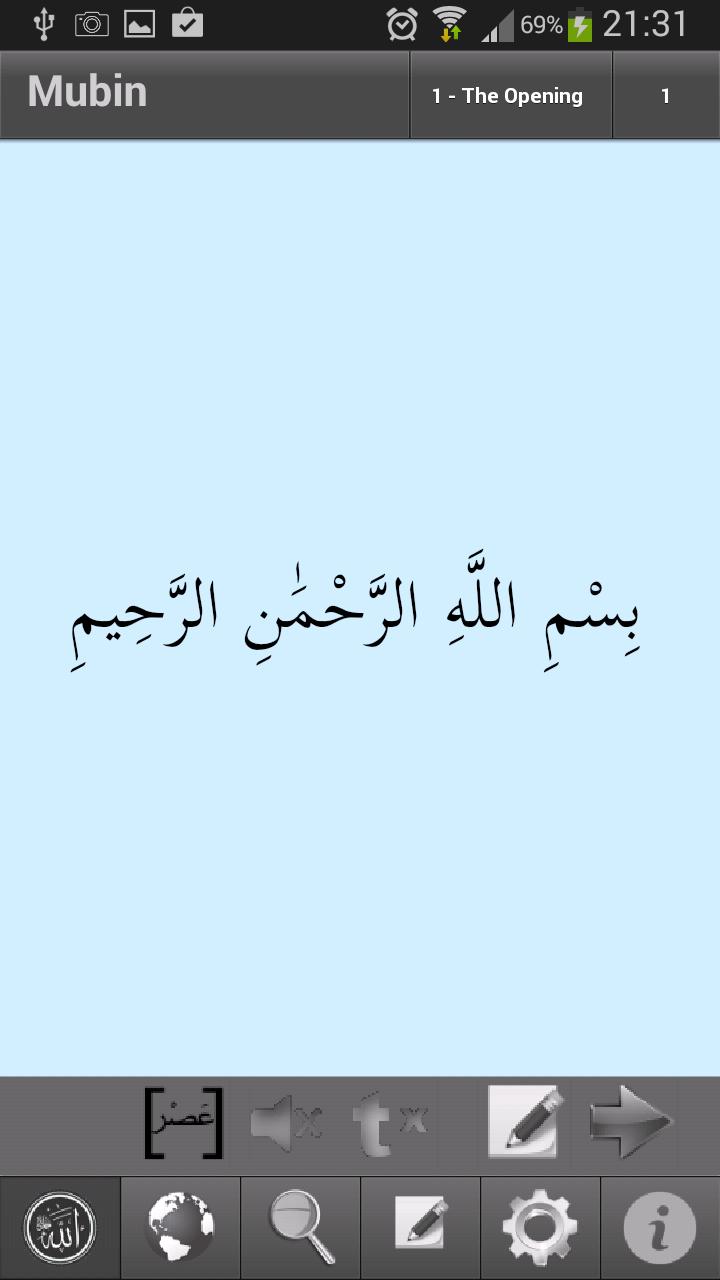 69% 21:31
Mubin 1 - The Opening 1
بِسْمِ اللَّهِ الرَّحْمَٰنِ الرَّحِيمِ
[عَصْر] x t x
الله i